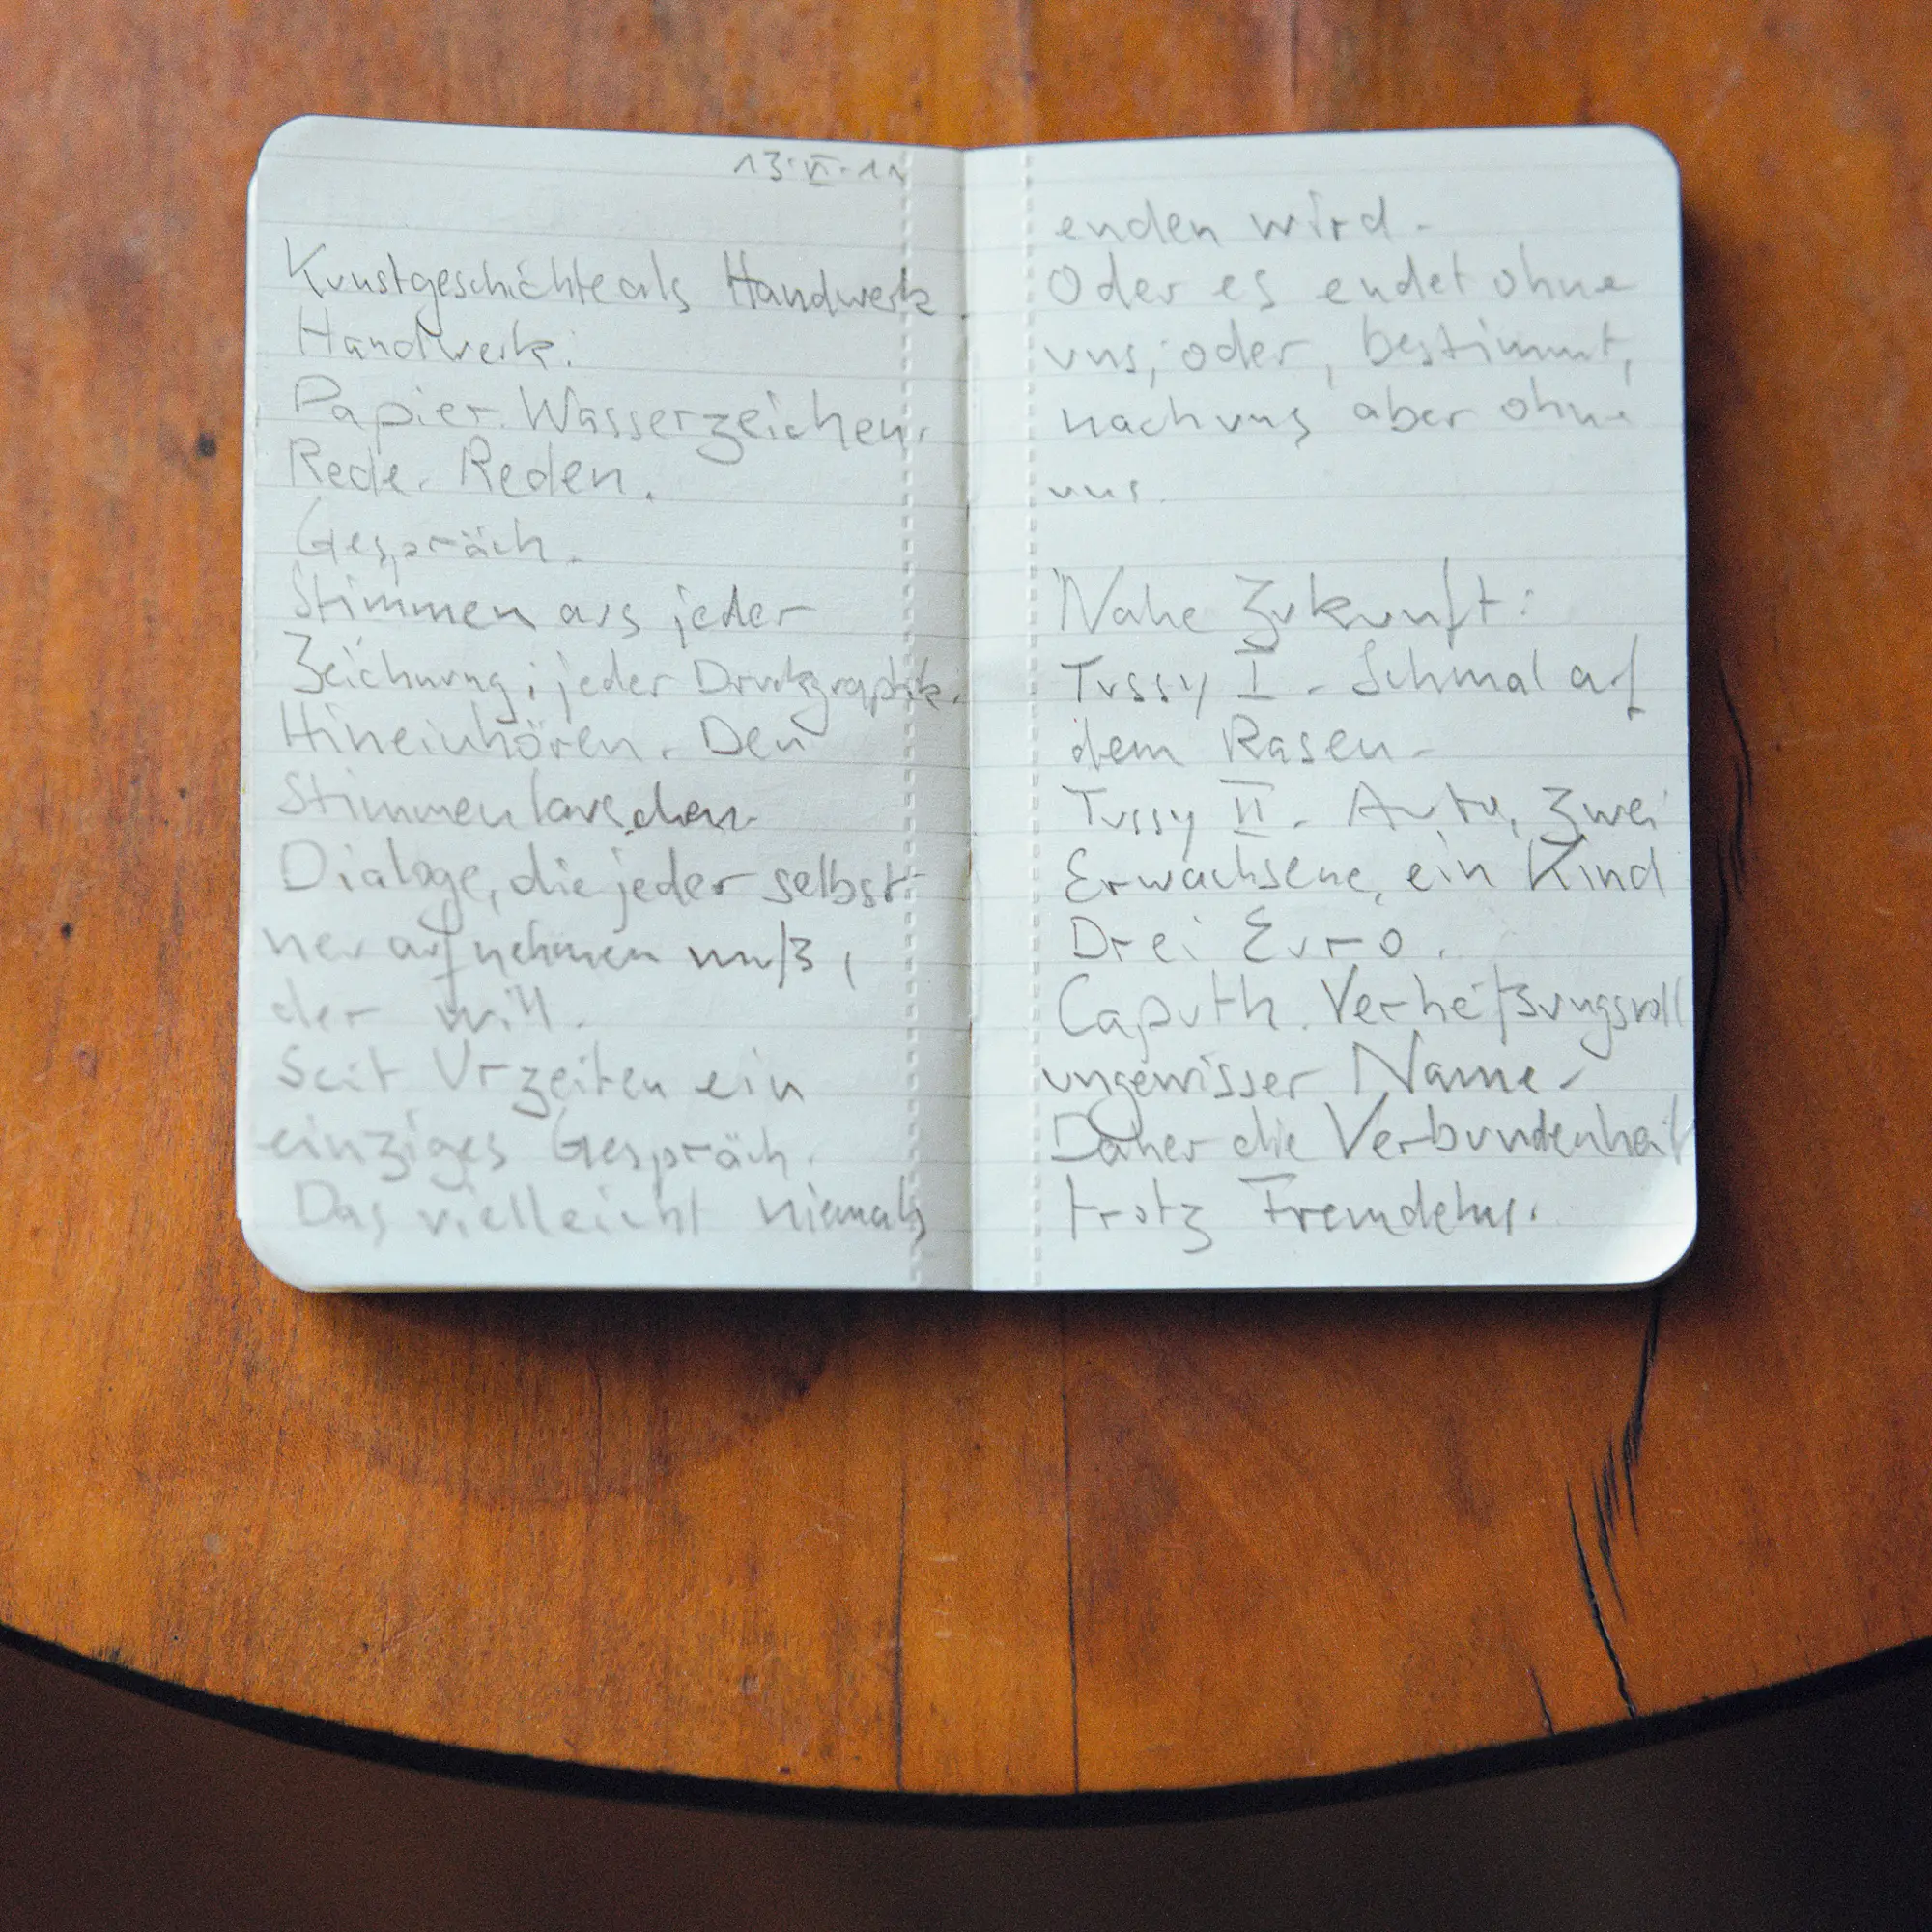 13.VI.11
Kunstgeschichte als Handwerk
Handwerk:
Papier. Wasserzeichen.
Rede. Reden.
Gespräch.
Stimmen aus jeder
Zeichnung, jeder Druckgraphik.
Hineinhören. Den
Stimmen lauschen.
Dialoge, die jeder selbst
neu aufnehmen muß,
der will.
Seit Urzeiten ein
einziges Gespräch.
Das vielleicht niemals
enden wird.
Oder es endet ohne
uns, oder, bestimmt,
nach uns aber ohne
uns.
Nahe Zukunft:
Tussy I. Schmal auf
dem Rasen.
Tussy II. Auto, zwei
Erwachsene, ein Kind
Drei Euro.
Caputh. Verheißungsvoll
ungewisser Name.
Daher die Verbundenheit
trotz Fremdelns.